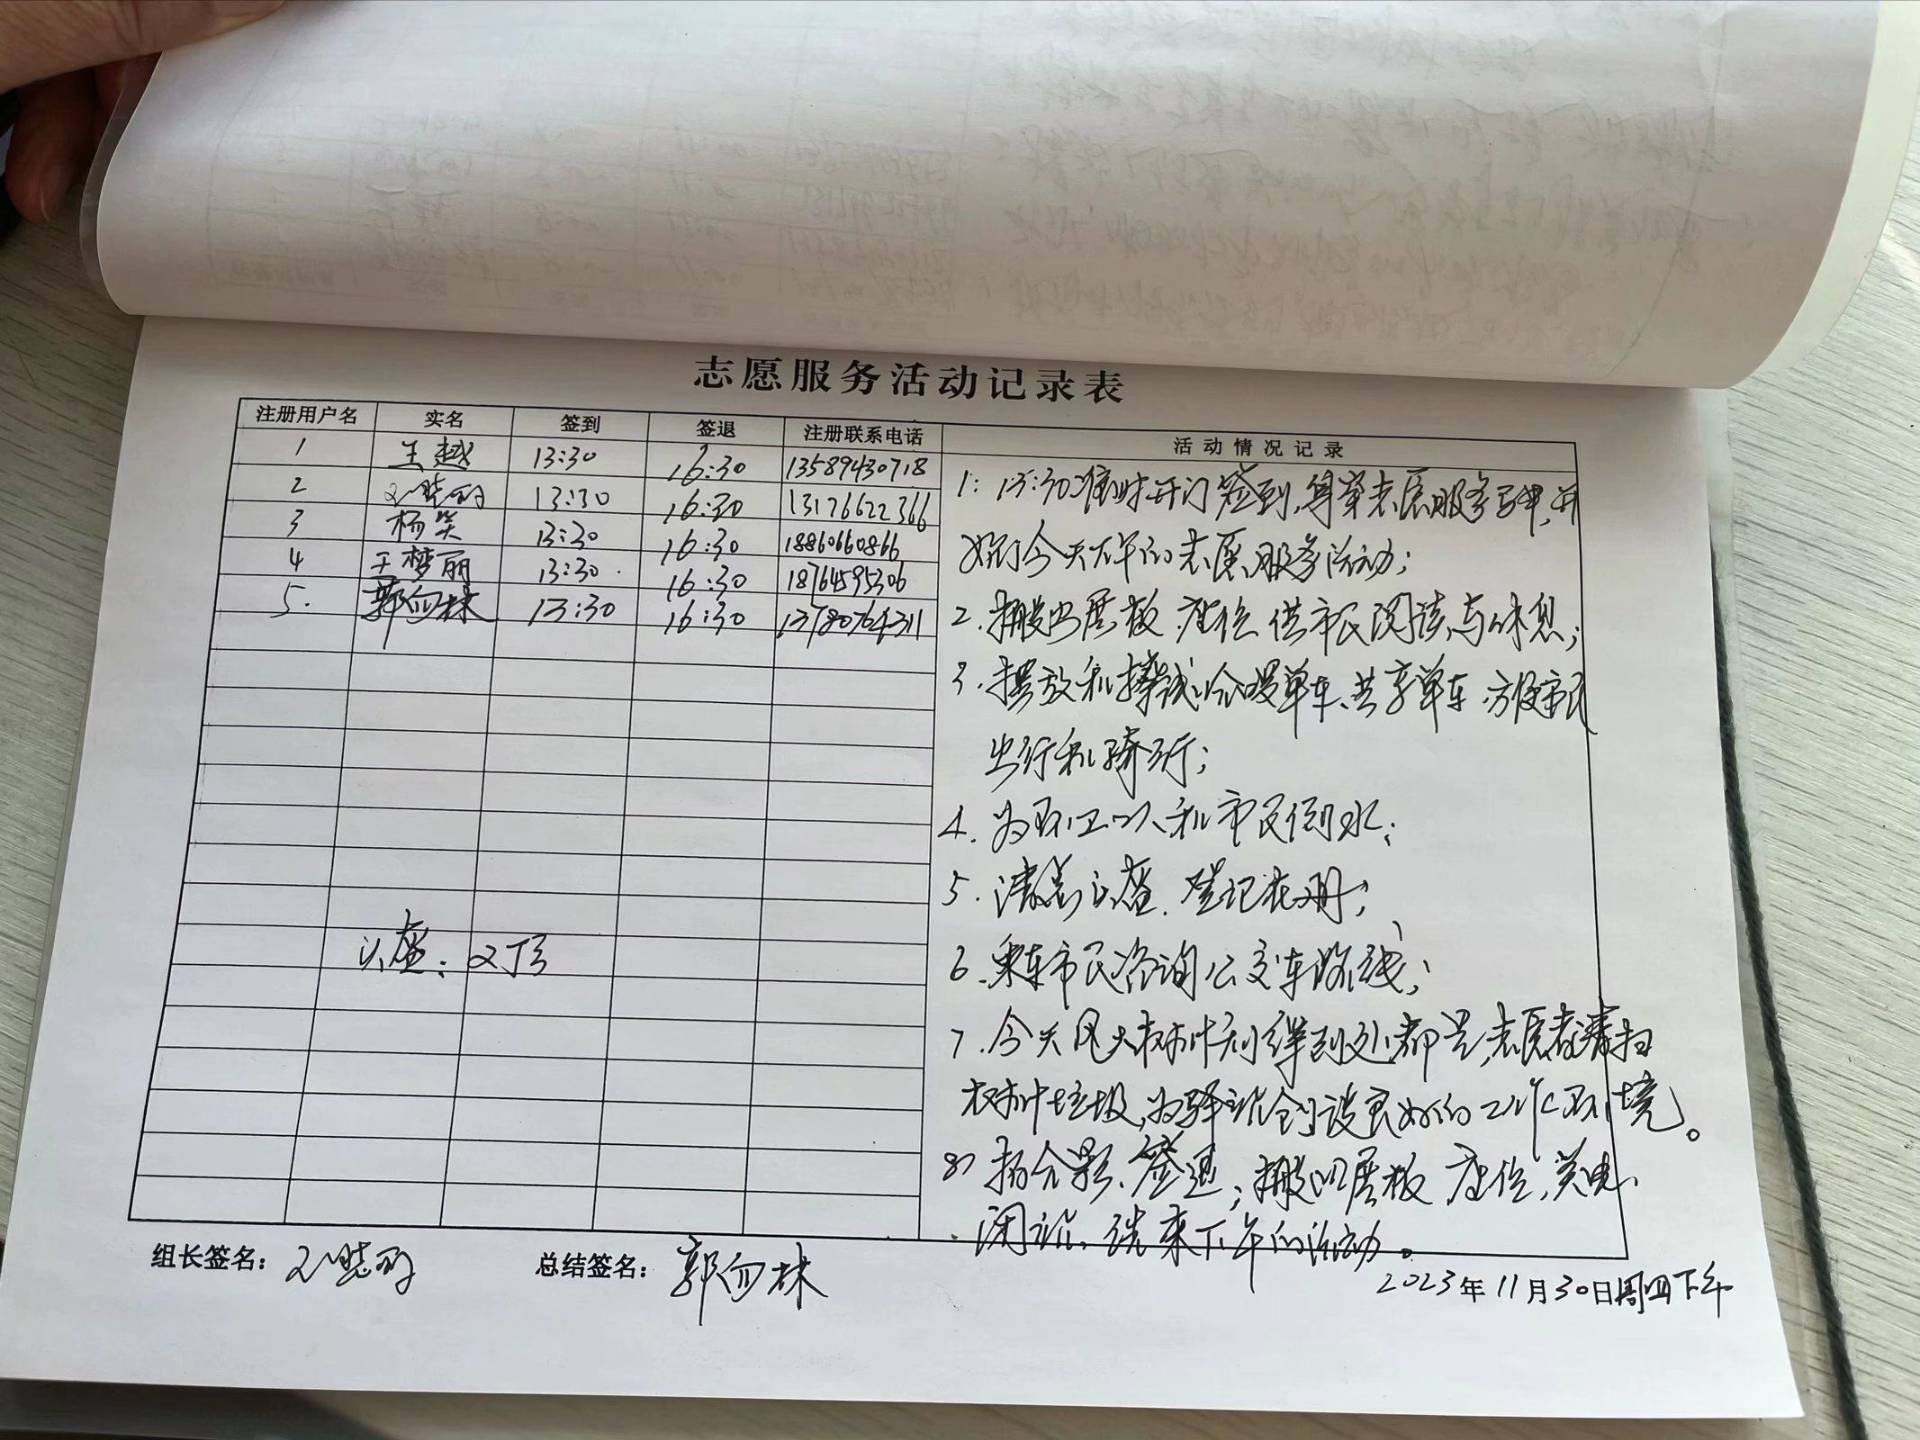 志愿服务活动记录表
注册用户名 实名 签到 签退 注册联系电话 活动情况记录
1 王越 13:30 16:30 13589430718
2 13:30 16:30 13176622366
3 杨笑 13:30 16:30 18860660866
4 王梦丽 13:30 16:30 18764595306
5. 郭向林 13:30 16:30 13780764311
头盔：2顶
1: 13:30准时开门签到,穿带志愿服务马甲,开
始了今天下午的志愿服务活动;
2. 搬出展板 座位 供市民阅读与休息;
3. 摆放和擦拭公暖单车、共享单车 方便市民
出行和骑行;
4. 为环卫工人和市民倒水;
5. 清点头盔、登记在册;
6. 乘车市民咨询公交车路线;
7. 今天风大树叶刮得到处都是,志愿者清扫
树叶垃圾,为驿站创设良好的工作环境。
8、拍合影、签退;搬回展板 座位,关电、
闭站、结束下午的活动。
组长签名： 总结签名：郭向林
2023年11月30日周四下午